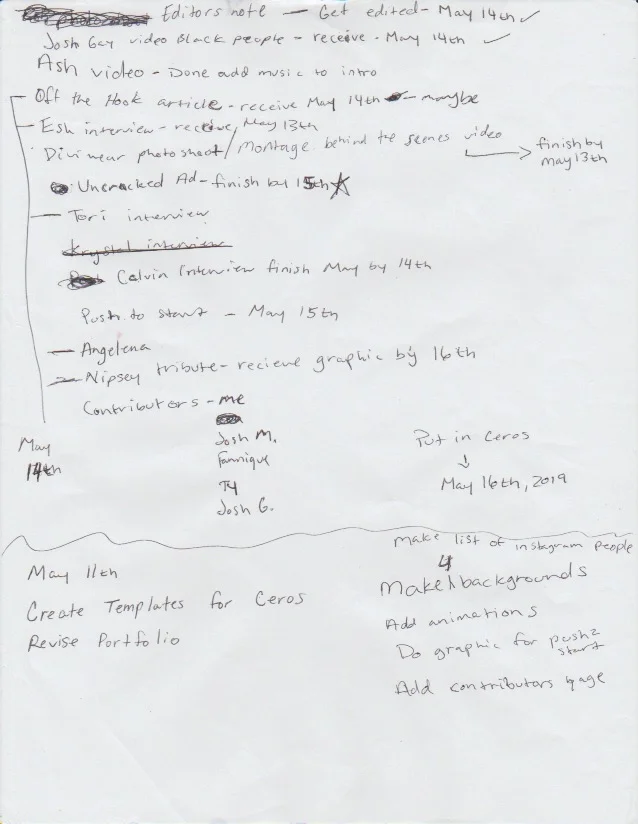 Editors note — Get edited - May 14th ✓
Josh Gay video Black people - receive - May 14th ✓
Ash video - Done add music to intro
Off the Hook article - receive May 14th - maybe
Esh interview - receive, May 13th
Divi wear photoshoot / Montage behind the scenes video
finish by
may 13th
Uncracked Ad - finish by 15th ☆
Tori interview
Krystal interview
Calvin Interview finish May by 14th
Push to start - May 15th
Angelena
Nipsey tribute - recieve graphic by 16th
Contributors - me
Josh M.
Fannique
Ty
Josh G.
May
14th
Put in Ceros
↓
May 16th, 2019
May 11th
Create Templates for Ceros
Revise Portfolio
make list of instagram people
Make 4 backgrounds
Add animations
Do graphic for push 2
start
Add contributors page